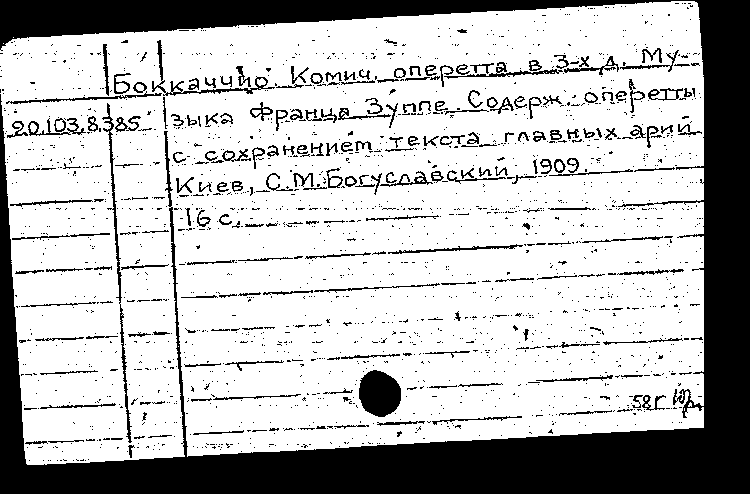 Боккаччио. Комич. оперетта в 3-х д. Му-
20.103.8.385 зыка Франца Зуппе. Содерж. оперетты
с сохранением текста главных арий.
Киев, С.М. Богуславский, 1909.
16 с.
58 г